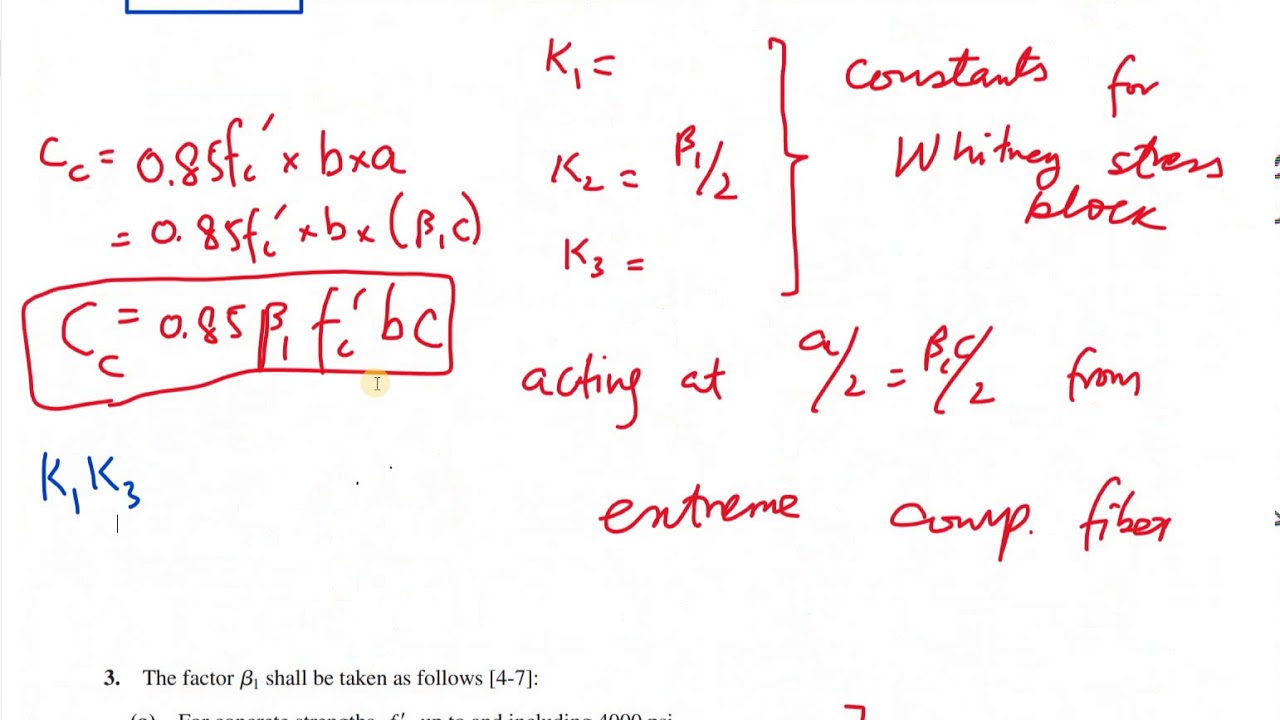 C_c = 0.85f_c' × b × a
= 0.85f_c' × b × (β₁c)
C_c = 0.85 β₁ f_c' b c
K₁K₃
K₁ =
K₂ = β₁/2
K₃ =
constants for
Whitney stress
block
acting at a/2 = β₁c/2 from
extreme comp. fiber
3. The factor β₁ shall be taken as follows [4-7]:
(a) For concrete strengths, f_c', up to and including 4000 psi